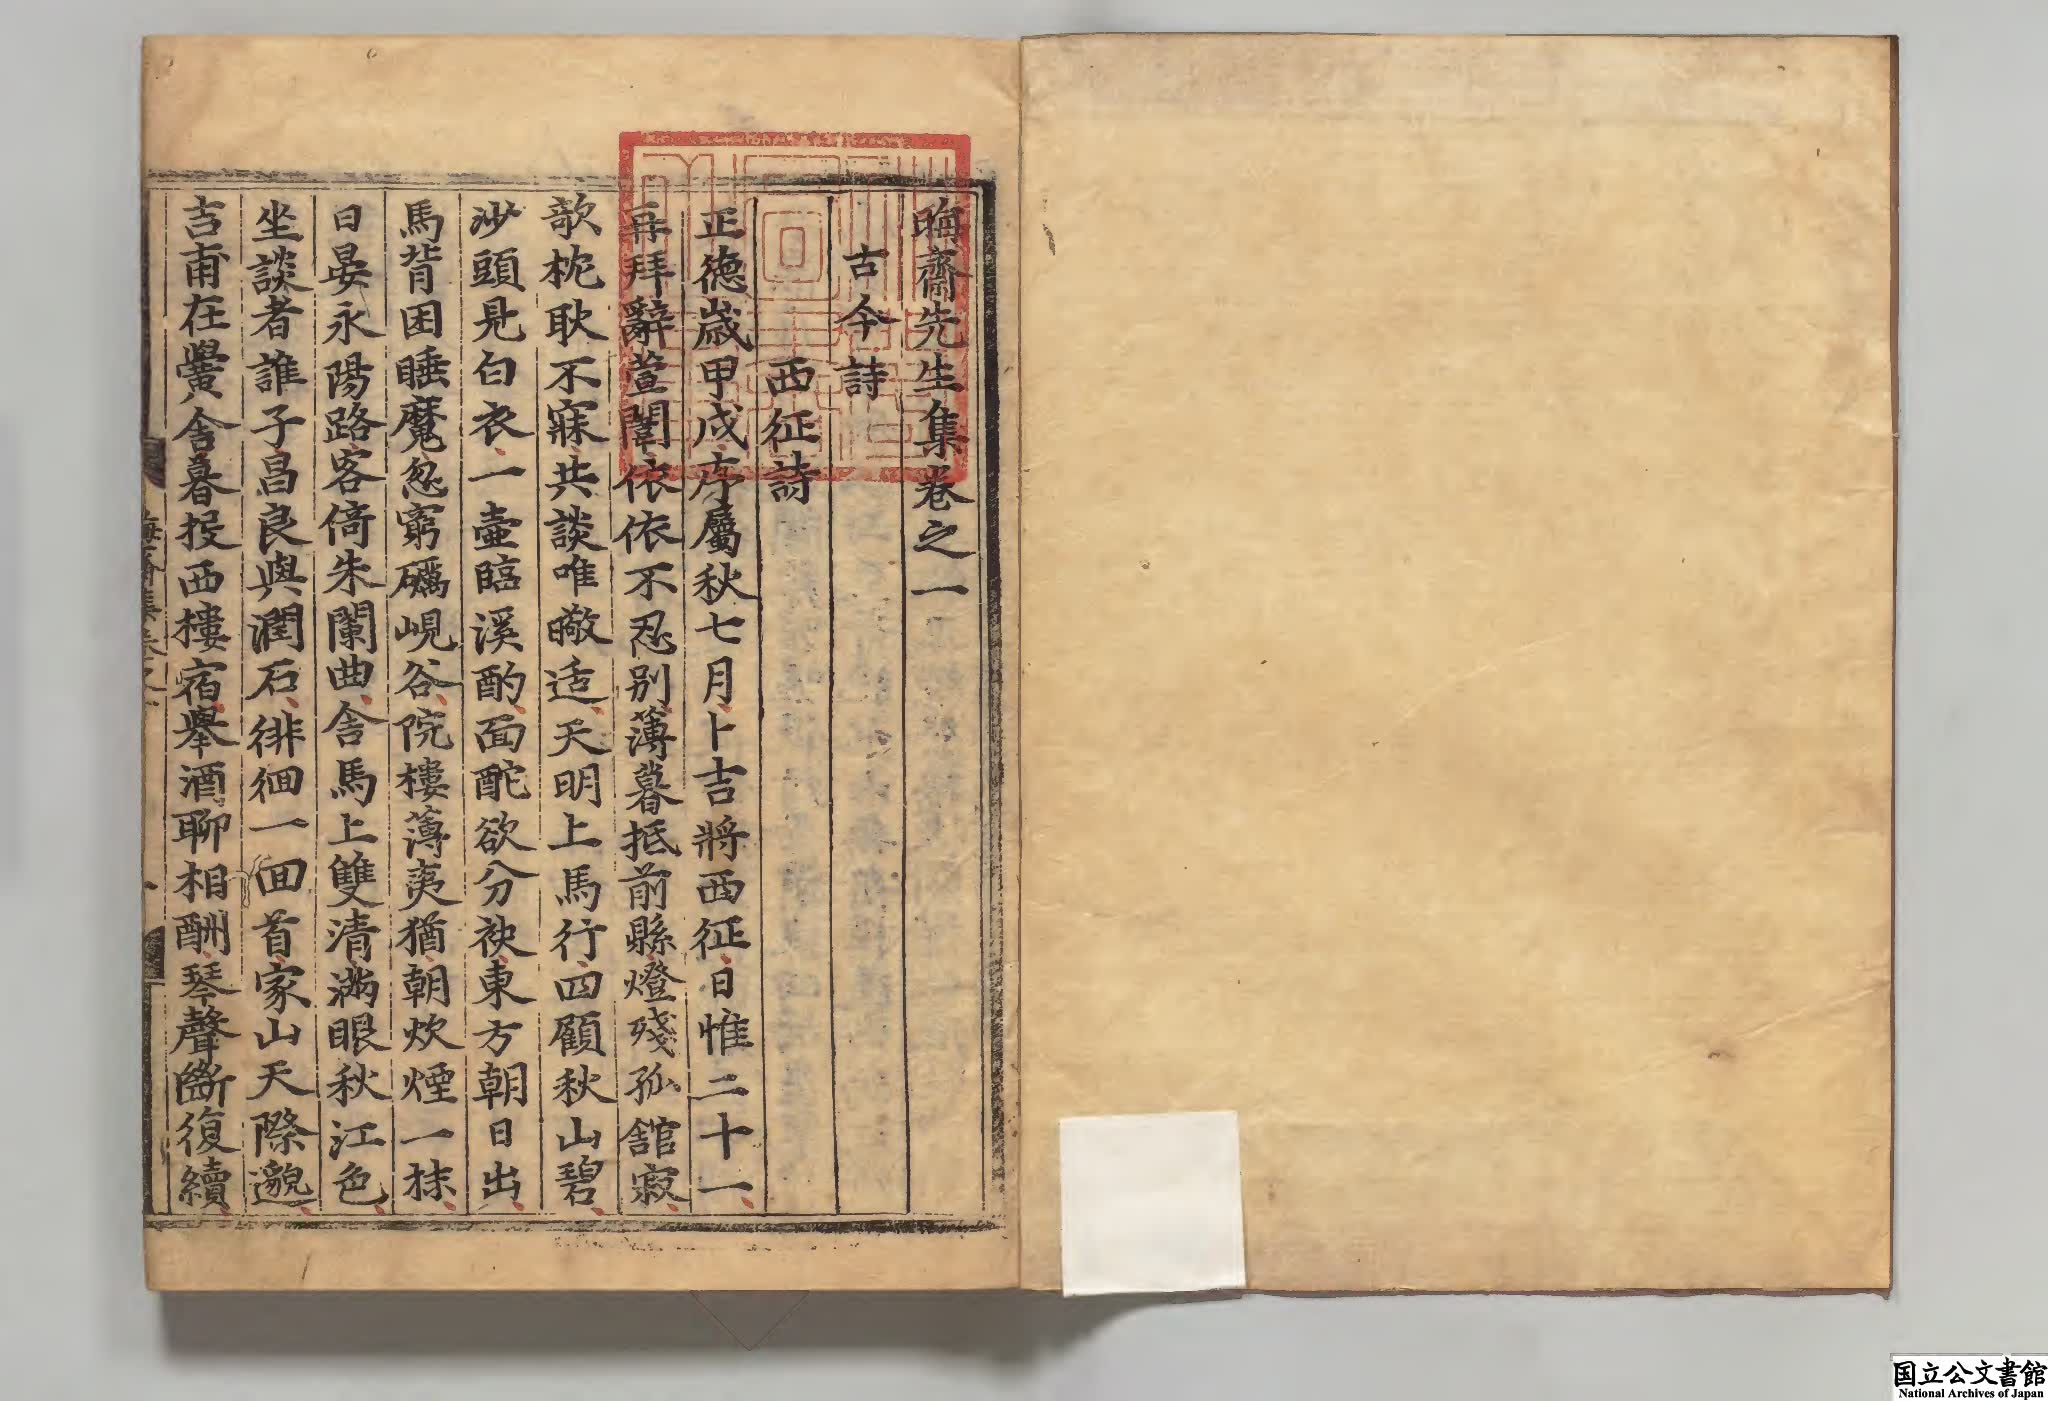 晦齋先生集卷之一
古今詩
西征詩
正德歲甲戌序屬秋七月卜吉將西征日惟二十一
再拜辭萱闈依依不忍別薄暮抵前縣燈殘孤舘寂
欹枕耿不寐共談唯暾适天明上馬行四顧秋山碧
沙頭見白衣一壷臨溪酌面酡欲分袂東方朝日出
馬背困睡魔忽窮礪峴谷院樓薄夷猶朝炊煙一抹
日晏永陽路客倚朱闌曲舎馬上雙清滿眼秋江色
坐談者誰子昌良與潤石徘徊一回首家山天際邈
吉甫在黌舎暮投西樓宿舉酒聊相酬琴聲斷復續
国立公文書館
National Archives of Japan